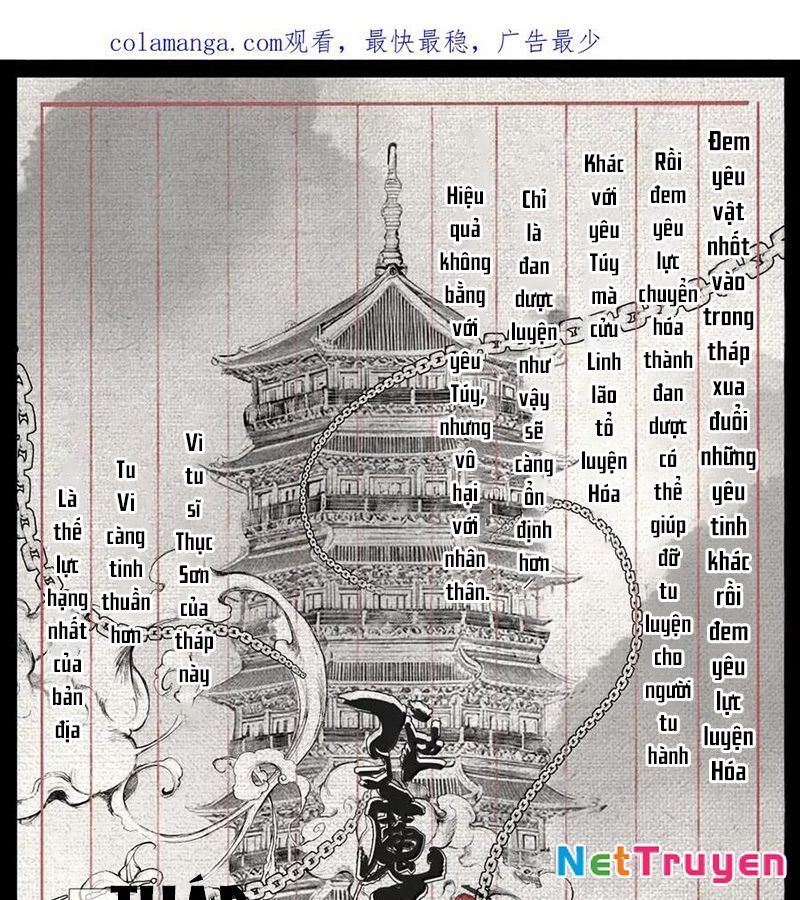 colamanga.com观看，最快最稳，广告最少
Đem yêu vật nhốt vào trong tháp xua đuổi những yêu tinh khác rồi đem yêu lực luyện Hóa
Rồi đem yêu lực chuyển hóa thành đan dược có thể giúp đỡ tu luyện cho người tu hành
Khác với yêu Túy mà cửu Linh lão tổ luyện Hóa
Chỉ là đan dược luyện như vậy sẽ càng ổn định hơn
Hiệu quả không bằng với yêu Túy, nhưng vô hại với nhân thân.
Vì tu sĩ Thục Sơn của tháp này
Tu Vi càng tinh thuần hơn
Là thế lực hạng nhất của bản địa
魔
THÁP
NetTruyen